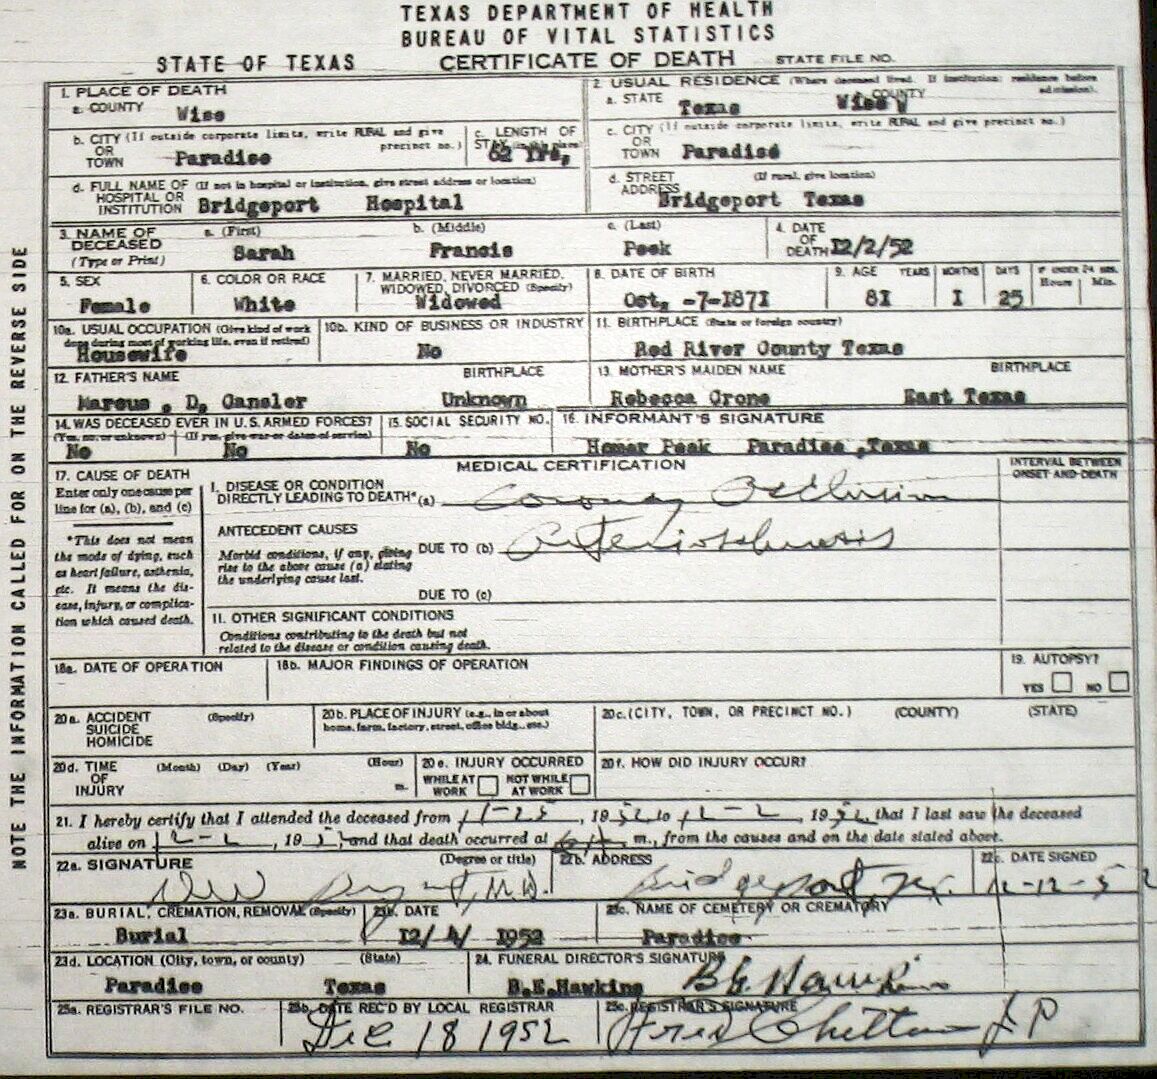 TEXAS DEPARTMENT OF HEALTH
BUREAU OF VITAL STATISTICS
STATE OF TEXAS CERTIFICATE OF DEATH STATE FILE NO.
NOTE THE INFORMATION CALLED FOR ON THE REVERSE SIDE
1. PLACE OF DEATH
a. COUNTY Wise
2. USUAL RESIDENCE (Where deceased lived. If institution: residence before admission).
a. STATE Texas COUNTY Wise
b. CITY (If outside corporate limits, write RURAL and give precinct no.)
OR
TOWN Paradise
c. LENGTH OF
STAY (in this place)
62 Yrs,
c. CITY (If outside corporate limits, write RURAL and give precinct no.)
OR
TOWN Paradise
d. FULL NAME OF (If not in hospital or institution, give street address or location)
HOSPITAL OR
INSTITUTION Bridgeport Hospital
d. STREET (If rural, give location)
ADDRESS Bridgeport Texas
3. NAME OF a. (First) b. (Middle) c. (Last)
DECEASED
(Type or Print) Sarah Francis Peek
4. DATE
OF
DEATH 12/2/52
5. SEX
Female
6. COLOR OR RACE
White
7. MARRIED, NEVER MARRIED,
WIDOWED, DIVORCED (Specify)
Widowed
8. DATE OF BIRTH
Oct, -7-1871
9. AGE YEARS MONTHS DAYS IF UNDER 24 HRS.
Hours Min.
81 1 25
10a. USUAL OCCUPATION (Give kind of work
done during most of working life, even if retired)
Housewife
10b. KIND OF BUSINESS OR INDUSTRY
No
11. BIRTHPLACE (State or foreign country)
Red River County Texas
12. FATHER'S NAME BIRTHPLACE
Marcus , D, Cansler Unknown
13. MOTHER'S MAIDEN NAME BIRTHPLACE
Rebecca Crone East Texas
14. WAS DECEASED EVER IN U.S. ARMED FORCES?
(Yes, no, or unknown) (If yes, give war or dates of service)
No No
15. SOCIAL SECURITY NO.
No
16. INFORMANT'S SIGNATURE
Homer Peek Paradise ,Texas
17. CAUSE OF DEATH
Enter only one cause per
line for (a), (b), and (c)
*This does not mean
the mode of dying, such
as heart failure, asthenia,
etc. It means the dis-
ease, injury, or complica-
tion which caused death.
MEDICAL CERTIFICATION
INTERVAL BETWEEN
ONSET AND DEATH
I. DISEASE OR CONDITION
DIRECTLY LEADING TO DEATH* (a) Coronary Occlusion
ANTECEDENT CAUSES
Morbid conditions, if any, giving
rise to the above cause (a) stating
the underlying cause last.
DUE TO (b) Arteriosclerosis
DUE TO (c)
II. OTHER SIGNIFICANT CONDITIONS
Conditions contributing to the death but not
related to the disease or condition causing death.
18a. DATE OF OPERATION
18b. MAJOR FINDINGS OF OPERATION
19. AUTOPSY?
YES NO
20a. ACCIDENT (Specify)
SUICIDE
HOMICIDE
20b. PLACE OF INJURY (e.g., in or about
home, farm, factory, street, office bldg., etc.)
20c. (CITY, TOWN, OR PRECINCT NO.) (COUNTY) (STATE)
20d. TIME (Month) (Day) (Year) (Hour)
OF
INJURY m.
20e. INJURY OCCURRED
WHILE AT WORK NOT WHILE AT WORK
20f. HOW DID INJURY OCCUR?
21. I hereby certify that I attended the deceased from 11-25, 1952, to 12-2, 1952, that I last saw the deceased
alive on 12-2, 1952, and that death occurred at m., from the causes and on the date stated above.
22a. SIGNATURE (Degree or title)
M.D.
22b. ADDRESS
Bridgeport, Tex.
22c. DATE SIGNED
12-12-52
23a. BURIAL, CREMATION, REMOVAL (Specify)
Burial
23b. DATE
12/4/ 1952
23c. NAME OF CEMETERY OR CREMATORY
Paradise
23d. LOCATION (City, town, or county) (State)
Paradise Texas
24. FUNERAL DIRECTOR'S SIGNATURE
B.E.Hawkins B.E. Hawkins
25a. REGISTRAR'S FILE NO.
25b. DATE REC'D BY LOCAL REGISTRAR
Dec 18 1952
25c. REGISTRAR'S SIGNATURE
J.P